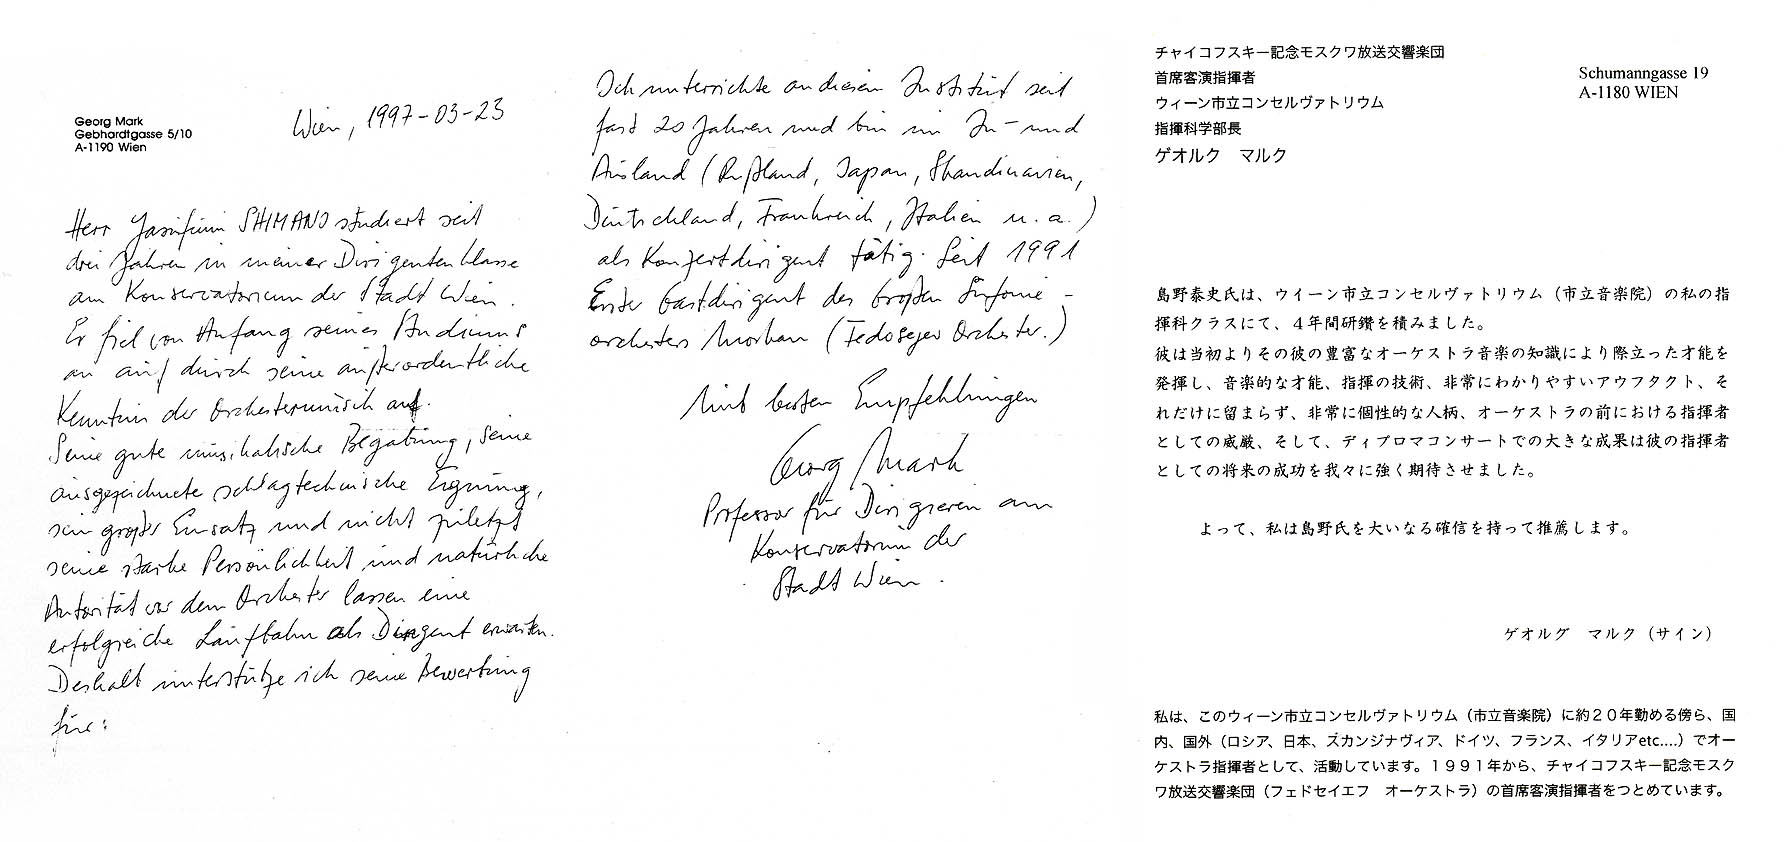 Georg Mark
Gebhardtgasse 5/10
A-1190 Wien
Wien, 1997-03-23
Herr Yasufumi SHIMANO studiert seit
drei Jahren in meiner Dirigentenklasse
am Konservatorium der Stadt Wien.
Er fiel von Anfang seines Studiums
an auf durch seine außerordentliche
Kenntnis der Orchestermusik auf.
Seine gute musikalische Begabung, seine
ausgezeichnete schlagtechnische Eignung,
sein großer Einsatz und nicht zuletzt
seine starke Persönlichkeit und natürliche
Autorität vor dem Orchester lassen eine
erfolgreiche Laufbahn als Dirigent erwarten.
Deshalb unterstütze ich seine Bewerbung
für:
Ich unterrichte an diesem Institut seit
fast 20 Jahren und bin im In- und
Ausland (Rußland, Japan, Skandinavien,
Deutschland, Frankreich, Italien u. a.)
als Konzertdirigent tätig. Seit 1991
Erster Gastdirigent des Großen Sinfonie-
orchesters Moskau (Fedosejev Orchester.)
Mit besten Empfehlungen
Georg Mark
Professor für Dirigieren am
Konservatorium der
Stadt Wien.
チャイコフスキー記念モスクワ放送交響楽団
首席客演指揮者
ウィーン市立コンセルヴァトリウム
指揮科学部長
ゲオルク　マルク
Schumanngasse 19
A-1180 WIEN
島野泰史氏は、ウイーン市立コンセルヴァトリウム（市立音楽院）の私の指
揮科クラスにて、４年間研鑽を積みました。
彼は当初よりその彼の豊富なオーケストラ音楽の知識により際立った才能を
発揮し、音楽的な才能、指揮の技術、非常にわかりやすいアウフタクト、そ
れだけに留まらず、非常に個性的な人柄、オーケストラの前における指揮者
としての威厳、そして、ディプロマコンサートでの大きな成果は彼の指揮者
としての将来の成功を我々に強く期待させました。
よって、私は島野氏を大いなる確信を持って推薦します。
ゲオルグ　マルク（サイン）
私は、このウィーン市立コンセルヴァトリウム（市立音楽院）に約２０年勤める傍ら、国
内、国外（ロシア、日本、スカンジナヴィア、ドイツ、フランス、イタリアetc....）でオー
ケストラ指揮者として、活動しています。１９９１年から、チャイコフスキー記念モスク
ワ放送交響楽団（フェドセイエフ　オーケストラ）の首席客演指揮者をつとめています。